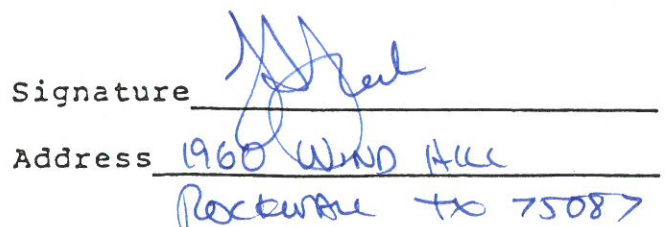 Signature
Address 1960 WIND HILL
ROCKWALL TX 75087